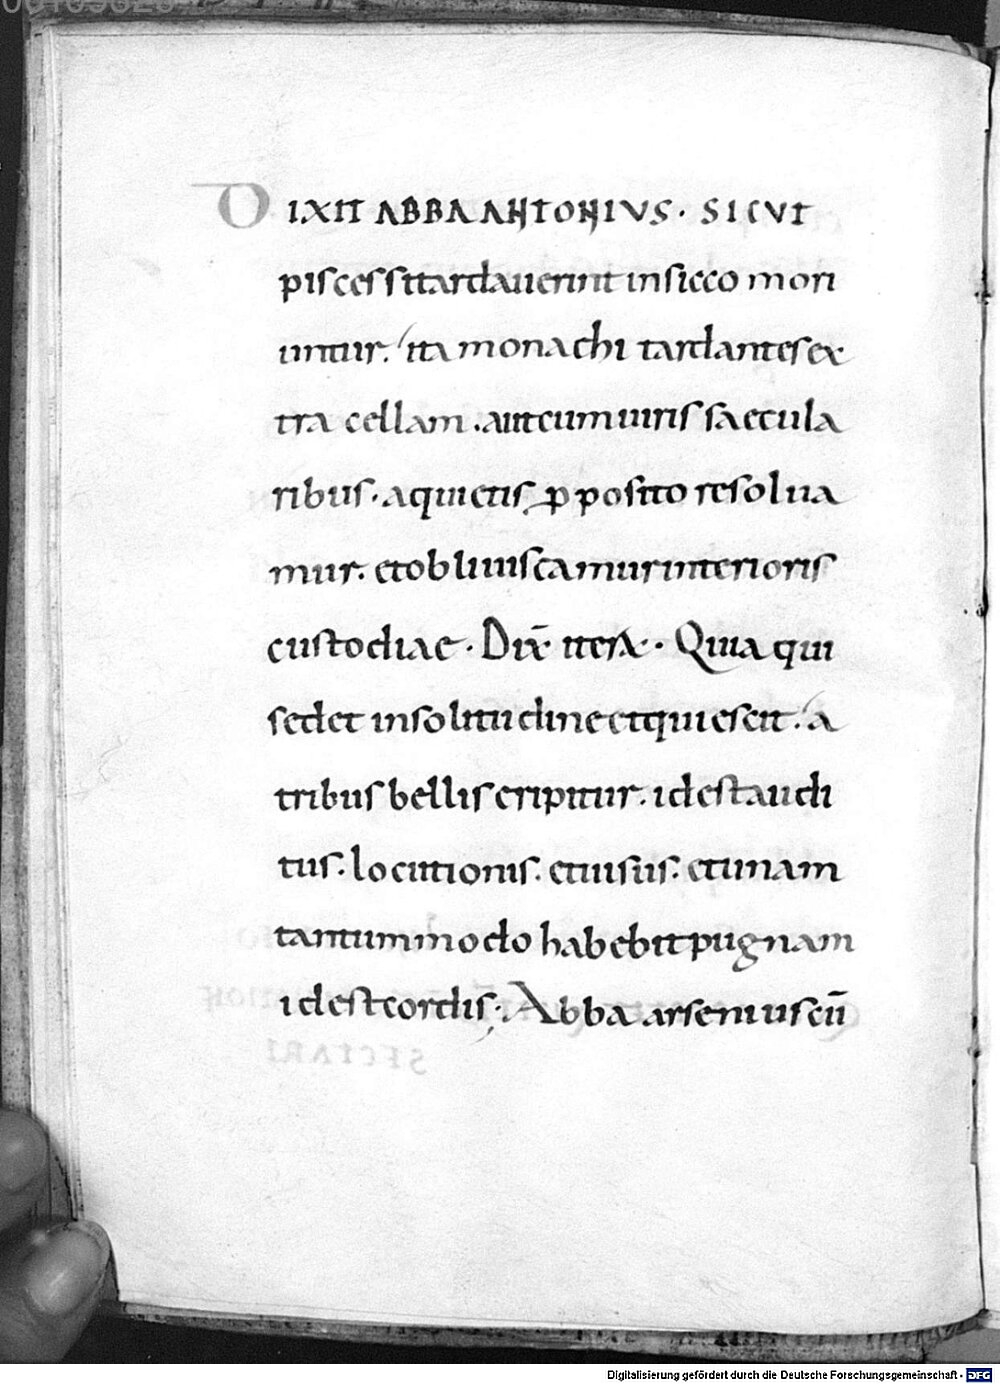 DIXIT ABBA ANTONIUS. SICUT
pisces si tardauerint in sicco mori
untur. ita monachi tardantes ex
tra cellam. aut cum uiris saecula
ribus. a quietis ꝓposito resolua
mur. et obliuiscamur interioris
custodiae. Dix̄ iterā. Quia qui
sedet in solitudine et quiescit. a
tribus bellis eripitur. id est audi
tus. locutionis. et uisus. et unam
tantummodo habebit pugnam
id est cordis; Abba arsenius cū
Digitalisierung gefördert durch die Deutsche Forschungsgemeinschaft - DFG